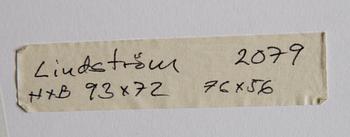 Lindström 2079
H×B 93×72 76×56